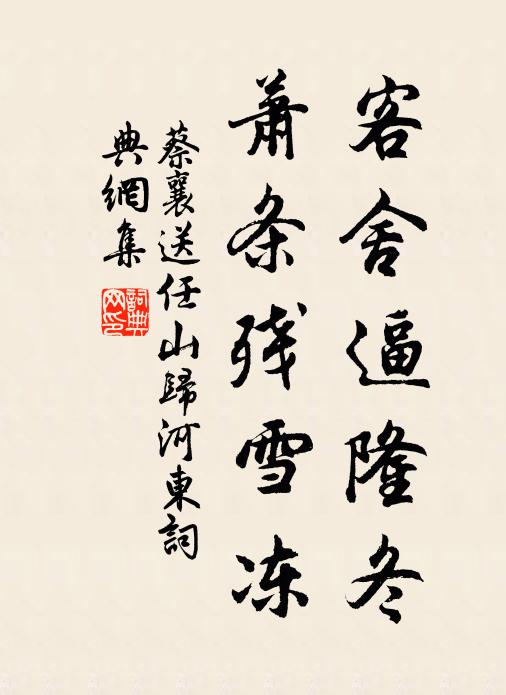 客舍逼隆冬
萧条残雪冻
蔡襄送任山歸河東詞
典網集
詞典網印